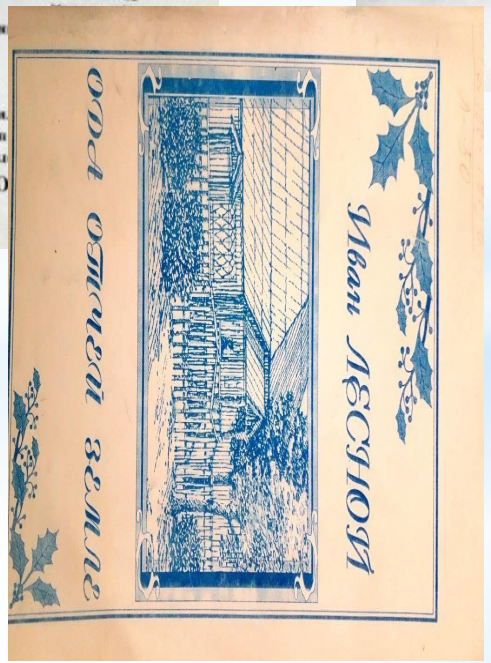 Иван ЛЕСНОЙ
ОДА ОТЧЕЙ ЗЕМЛЕ